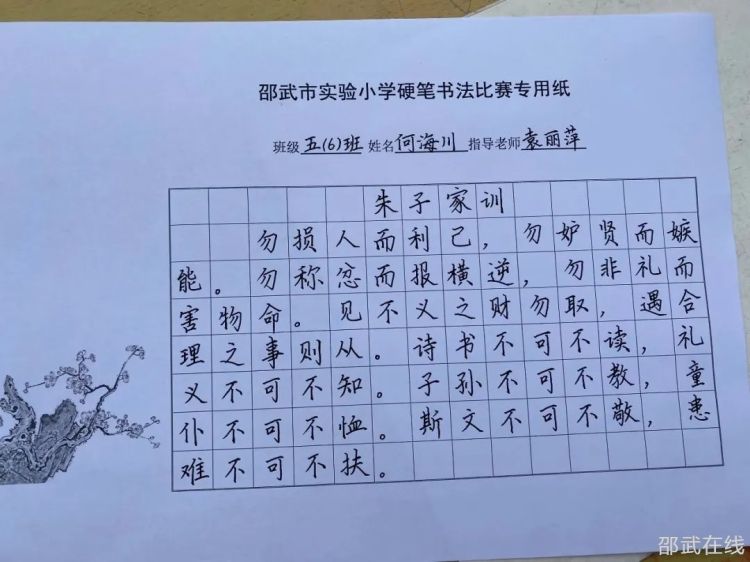 邵武市实验小学硬笔书法比赛专用纸
班级 五(6)班 姓名 何海川 指导老师 袁丽萍
朱子家训
勿损人而利己，勿妒贤而嫉
能。勿称忿而报横逆，勿非礼而
害物命。见不义之财勿取，遇合
理之事则从。诗书不可不读，礼
义不可不知。子孙不可不教，童
仆不可不恤。斯文不可不敬，患
难不可不扶。
邵武在线